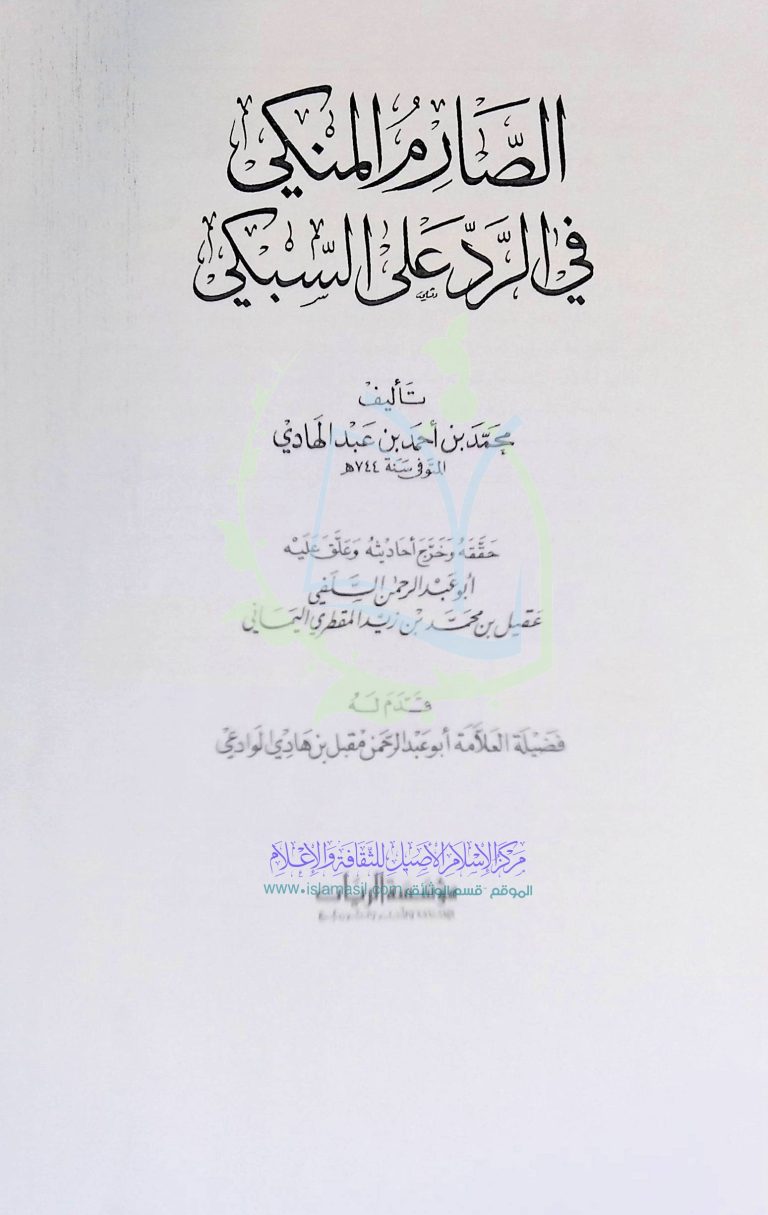 الصَّارِمُ المنكي
في الرَّدِّ عَلى السِّبْكي
تَأليف
محمَّد بن أحمد بن عَبْد الهَادِيْ
المتوفى سَنة ٧٤٤هـ
حَقَّقَهُ وَخَرَّج أحَاديثهُ وَعَلَّق عَلَيْه
أبُو عَبْد الرحمٰن السَّلَفِي
عَقيل بن محمَّد بن زَيْد المقطري اليَمَاني
قَدَّمَ لَهُ
فَضيلَة العَلاَّمَة أبو عَبْد الرحمَن مُقبل بن هَادِيْ الوادعيْ
مركز الإسلام الأصيل للثقافة والإعلام
الموقع قسم الوثائق www.islamasil.com
مؤسسة الريان